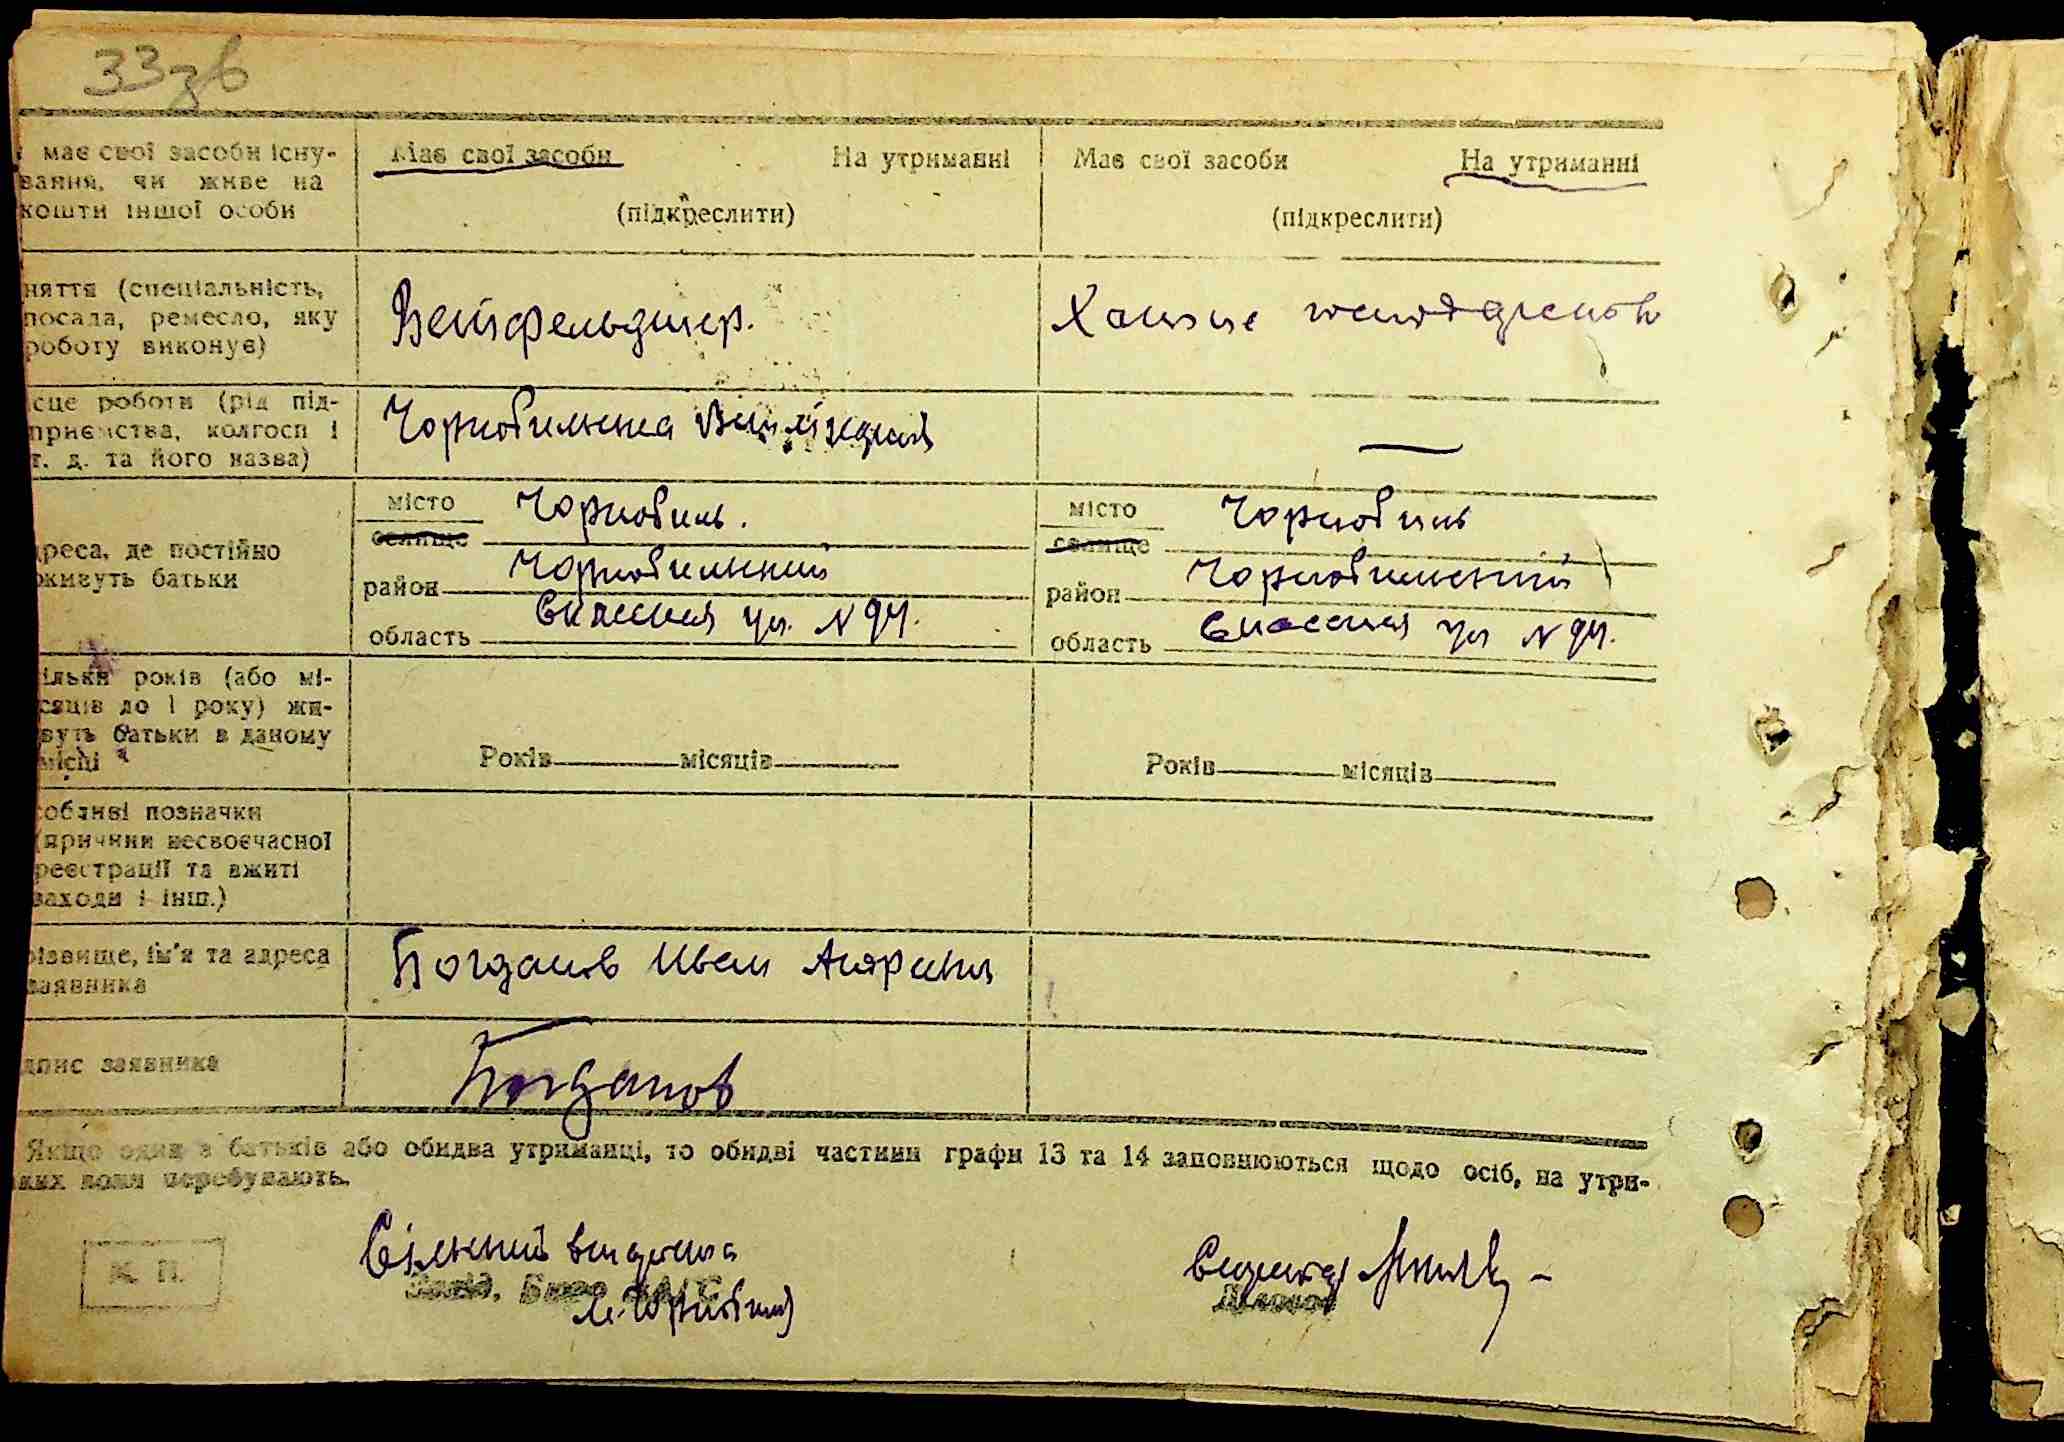 33 зв
має свої засоби існу-
вання, чи живе на
кошти іншої особи
Має свої засоби На утриманні
(підкреслити)
Має свої засоби На утриманні
(підкреслити)
няття (спеціальність,
посада, ремесло, яку
роботу виконує)
Ветфельдшер.
Хатнє
сце роботи (рід під-
приємства, колгосп і
т. д. та його назва)
Чорнобильска
—
дреса, де постійно
живуть батьки
місто Чорнобиль.
селище
район Чорнобильский
область Спасская ул. N 94.
місто Чорнобиль
селище
район Чорнобильский
область Спасская ул N 94.
ільки років (або мі-
сяців до 1 року) жи-
вуть батьки в даному
місці
Років місяців
Років місяців
собливі позначки
(причини несвоєчасної
реєстрації та вжиті
заходи і інш.)
різвище, ім'я та адреса
заявника
Богданов Иван
дпис заявника
Богданов
Якщо один з батьків або обидва утриманці, то обидві частини графи 13 та 14 заповнюються щодо осіб, на утри-
яких вони перебувають.
М. П.
Завід. Бюро ЗАГС
м. Чорнобиль
Діловод